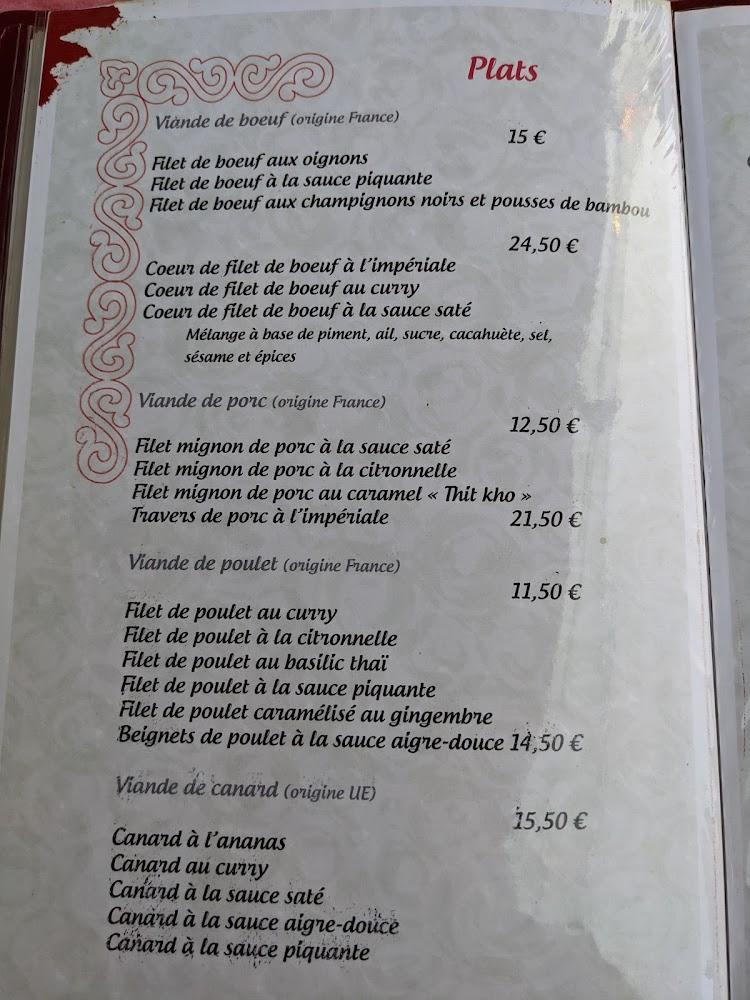 Plats
Viande de boeuf (origine France)
15 €
Filet de boeuf aux oignons
Filet de boeuf à la sauce piquante
Filet de boeuf aux champignons noirs et pousses de bambou
24,50 €
Coeur de filet de boeuf à l'impériale
Coeur de filet de boeuf au curry
Coeur de filet de boeuf à la sauce saté
Mélange à base de piment, ail, sucre, cacahuète, sel,
sésame et épices
Viande de porc (origine France)
12,50 €
Filet mignon de porc à la sauce saté
Filet mignon de porc à la citronnelle
Filet mignon de porc au caramel « Thit kho »
Travers de porc à l'impériale 21,50 €
Viande de poulet (origine France)
11,50 €
Filet de poulet au curry
Filet de poulet à la citronnelle
Filet de poulet au basilic thaï
Filet de poulet à la sauce piquante
Filet de poulet caramélisé au gingembre
Beignets de poulet à la sauce aigre-douce 14,50 €
Viande de canard (origine UE)
15,50 €
Canard à l'ananas
Canard au curry
Canard à la sauce saté
Canard à la sauce aigre-douce
Canard à la sauce piquante